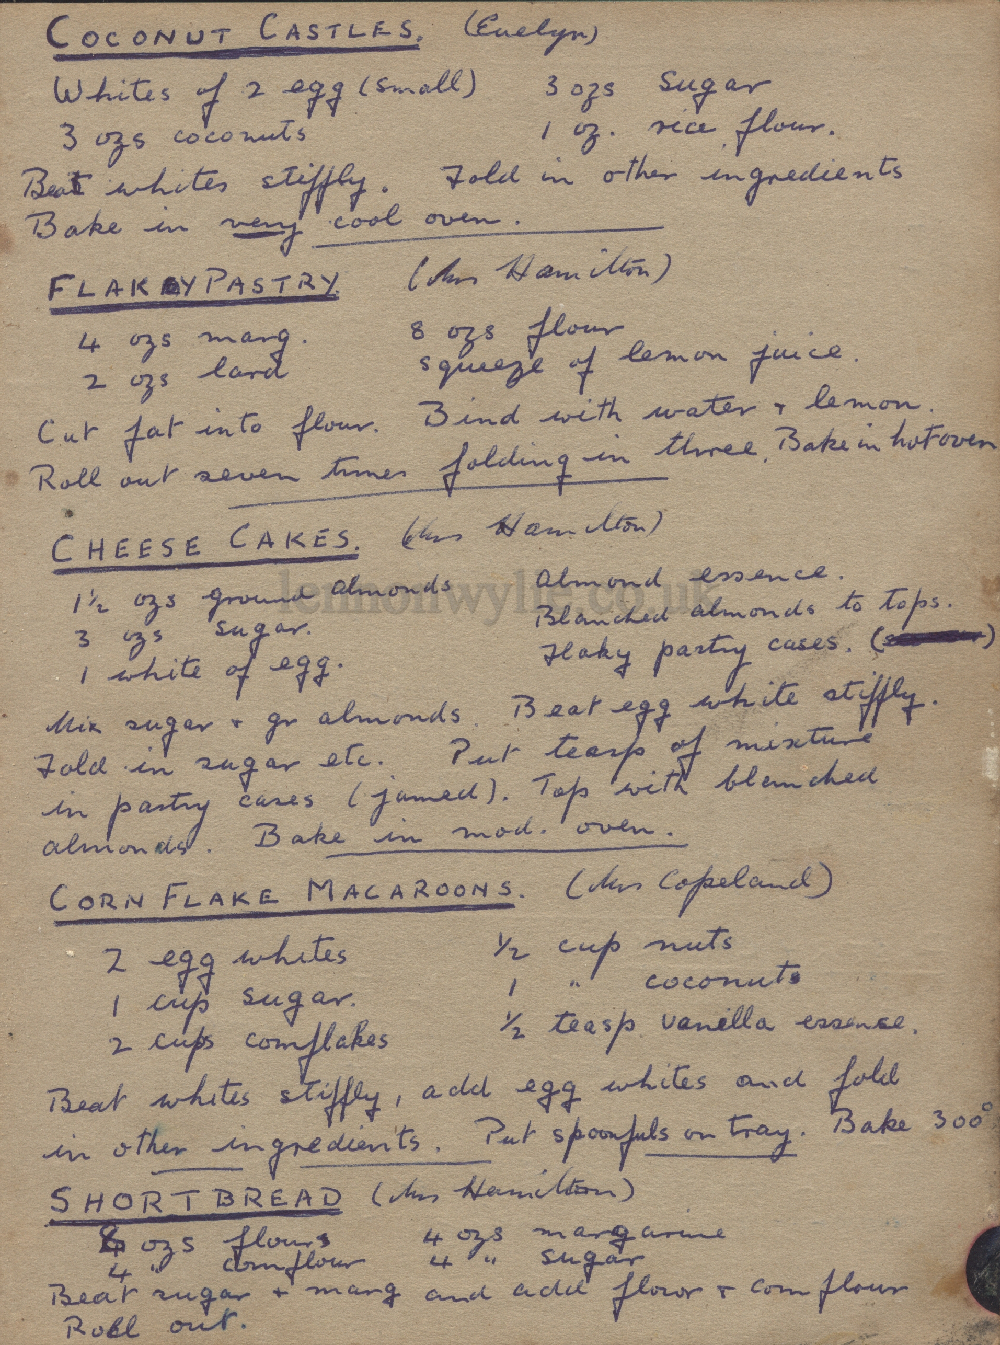 COCONUT CASTLES. (Evelyn)
Whites of 2 egg (small) 3 ozs sugar
3 ozs coconuts 1 oz. rice flour.
Beat whites stiffly. Fold in other ingredients
Bake in very cool oven.
FLAKEY PASTRY (Mrs Hamilton)
4 ozs marg. 8 ozs flour
2 ozs lard squeeze of lemon juice.
Cut fat into flour. Bind with water + lemon.
Roll out seven times folding in three. Bake in hot oven
CHEESE CAKES. (Mrs Hamilton)
1½ ozs ground almonds almond essence.
lennonwylie.co.uk
3 ozs sugar. Blanched almonds to tops.
1 white of egg. Flaky pastry cases.
Mix sugar + gr almonds. Beat egg white stiffly.
Fold in sugar etc. Put teasp of mixture
in pastry cases (jamed). Top with blanched
almonds. Bake in mod. oven.
CORN FLAKE MACAROONS. (Mrs Copeland)
2 egg whites ½ cup nuts
1 cup sugar. 1 " coconuts
2 cups cornflakes ½ teasp vanilla essense.
Beat whites stiffly, add egg whites and fold
in other ingredients. Put spoonfuls on tray. Bake 300°
SHORTBREAD (Mrs Hamilton)
ozs flours 4 ozs margarine
4 " cornflour 4 " sugar
Beat sugar + marg and add flour + corn flour
Roll out.